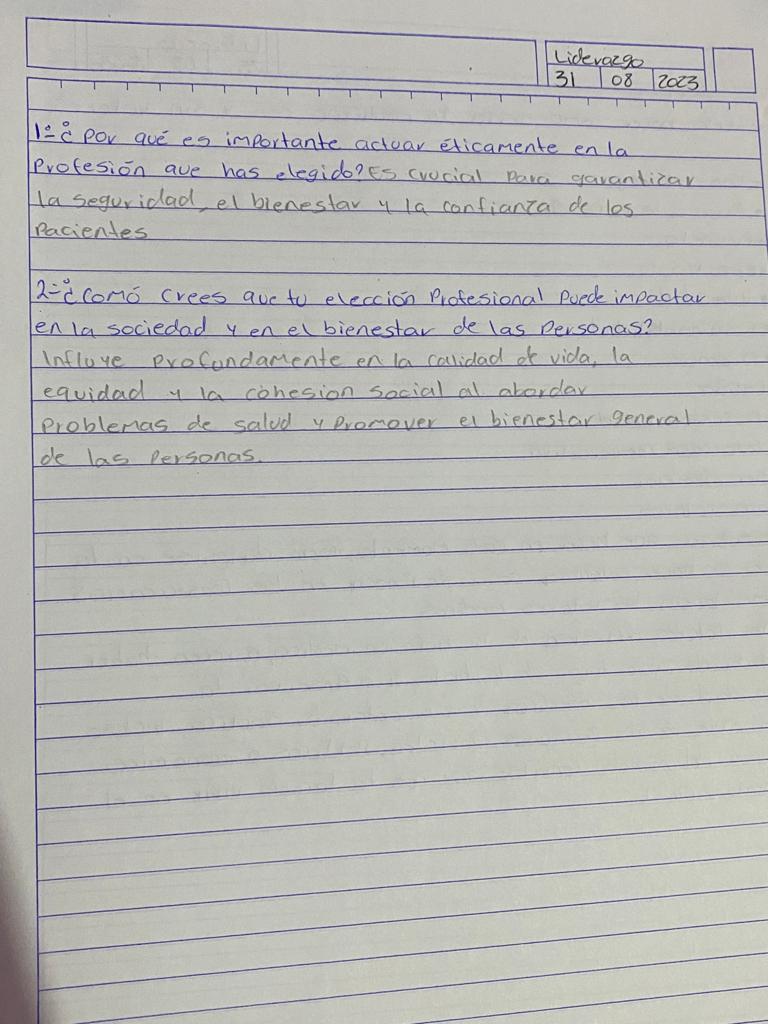 Liderazgo
31 08 2023
1=¿ Por qué es importante actuar éticamente en la
Profesión que has elegido? Es crucial Para garantizar
la seguridad, el bienestar y la confianza de los
Pacientes
2=¿Comó crees que tu elección Profesional Puede impactar
en la sociedad y en el bienestar de las Personas?
Influye profundamente en la calidad de vida, la
equidad y la cohesion social al abordar
Problemas de salud y Promover el bienestar general
de las Personas.